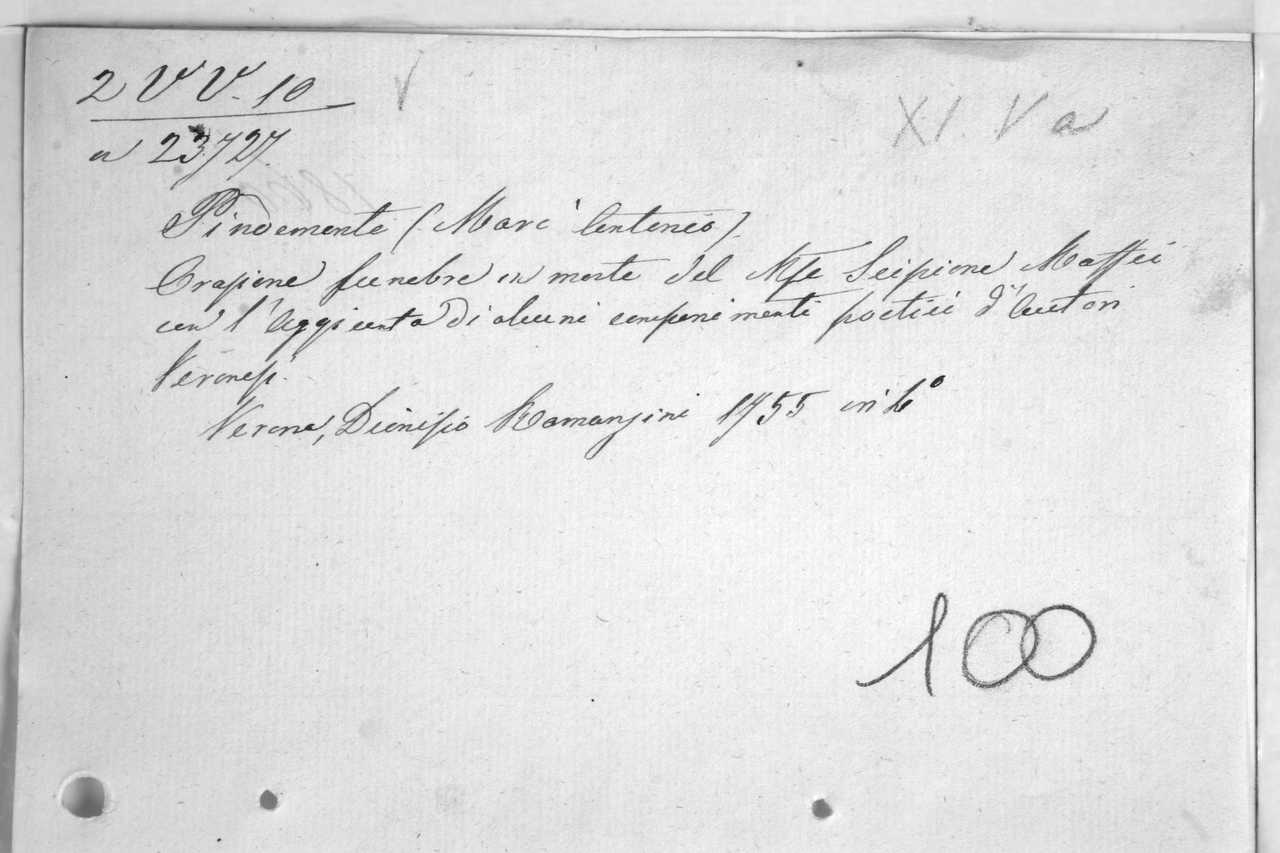 2 V V. 10
XI V a
a 23727.
Pindemonte (Marc' Antonio).
Orazione funebre in morte del Mse Scipione Maffei
con l'Aggiunta di alcuni componimenti poetici d'Autori
Veronesi.
Verona, Dionisio Ramanzini 1755 in 4°
100